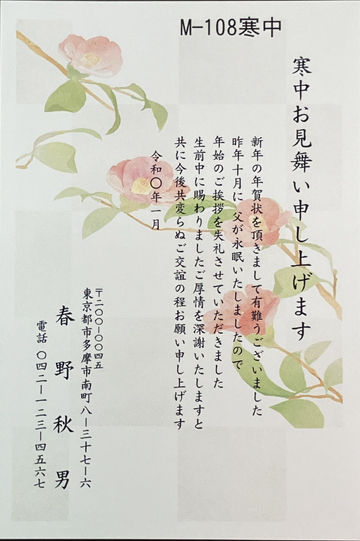 M-108寒中
寒中お見舞い申し上げます
新年の年賀状を頂きまして有難うございました
昨年十月に 父が永眠いたしましたので
年始のご挨拶を失礼させていただきました
生前中に賜わりましたご厚情を深謝いたしますと
共に今後共変らぬご交誼の程お願い申し上げます
令和〇年一月
〒二〇〇-〇〇四五
東京都市多摩市南町八-三十七-六
春野秋男
電話 〇四二-一二三-四五六七